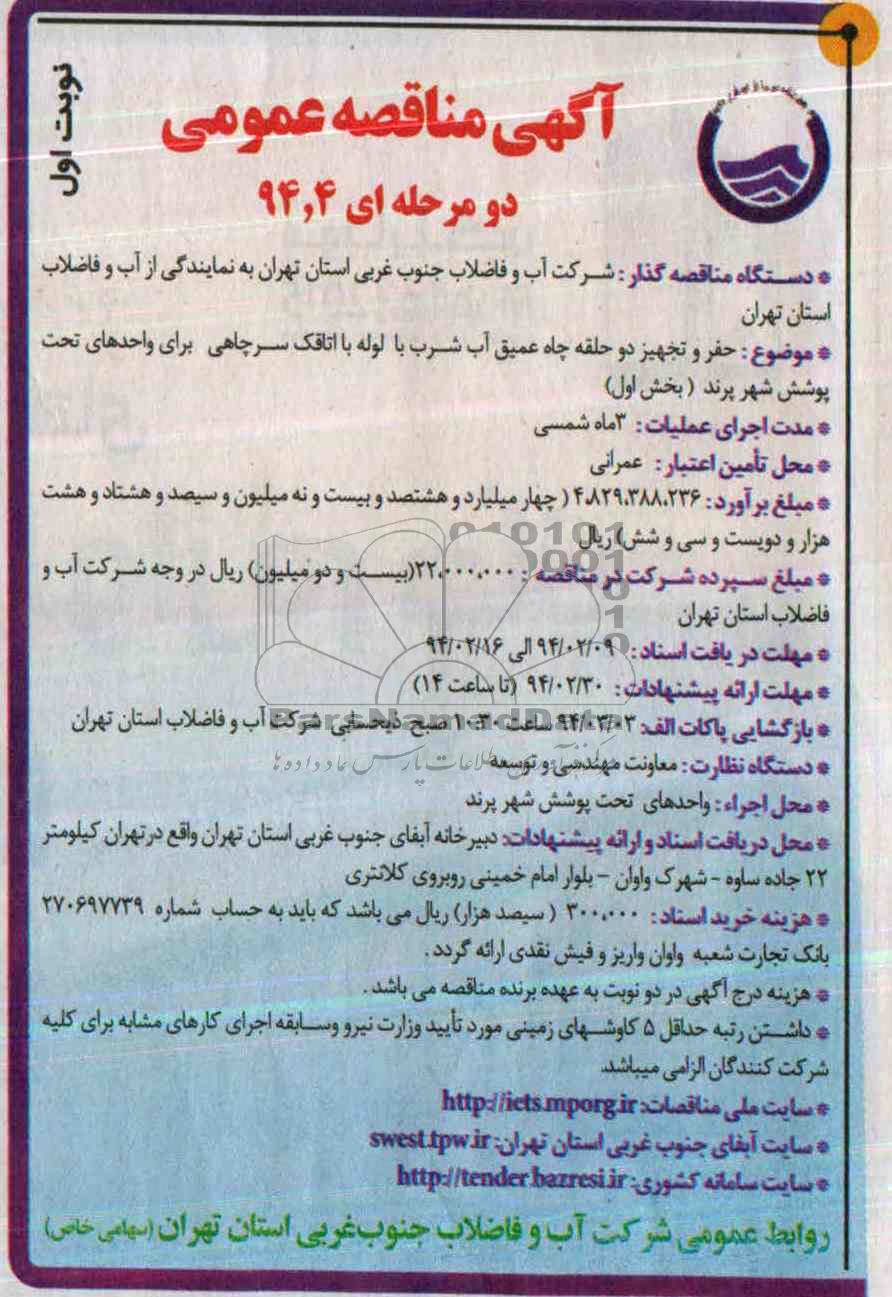 نوبت اول
آگهی مناقصه عمومی
دو مرحله ای ۹۴,۴
* دستگاه مناقصه گذار : شرکت آب و فاضلاب جنوب غربی استان تهران به نمایندگی از آب و فاضلاب
استان تهران
* موضوع : حفر و تجهیز دو حلقه چاه عمیق آب شرب با لوله با اتاقک سرچاهی برای واحدهای تحت
پوشش شهر پرند ( بخش اول)
* مدت اجرای عملیات : ۳ماه شمسی
* محل تأمین اعتبار : عمرانی
* مبلغ برآورد : ۴،۸۲۹،۳۸۸،۲۳۶ ( چهار میلیارد و هشتصد و بیست و نه میلیون و سیصد و هشتاد و هشت
هزار و دویست و سی و شش) ریال
* مبلغ سپرده شرکت در مناقصه : ۲۲،۰۰۰،۰۰۰(بیست و دو میلیون) ریال در وجه شرکت آب و
فاضلاب استان تهران
* مهلت دریافت اسناد : ۹۴/۰۲/۰۹ الی ۹۴/۰۲/۱۶
* مهلت ارائه پیشنهادات : ۹۴/۰۲/۳۰ (تا ساعت ۱۴)
* بازگشایی پاکات الف: ۹۴/۰۳/۰۳ ساعت ۱۰:۳۰ صبح ذیحسابی شرکت آب و فاضلاب استان تهران
ParsNamadData
* دستگاه نظارت : معاونت مهندسی و توسعه
* محل اجراء : واحدهای تحت پوشش شهر پرند
* محل دریافت اسناد و ارائه پیشنهادات: دبیرخانه آبفای جنوب غربی استان تهران واقع درتهران کیلومتر
۲۲ جاده ساوه - شهرک واوان - بلوار امام خمینی روبروی کلانتری
* هزینه خرید اسناد : ۳۰۰،۰۰۰ ( سیصد هزار) ریال می باشد که باید به حساب شماره ۲۷۰۶۹۷۷۳۹
بانک تجارت شعبه واوان واریز و فیش نقدی ارائه گردد .
* هزینه درج آگهی در دو نوبت به عهده برنده مناقصه می باشد .
* داشتن رتبه حداقل ۵ کاوشهای زمینی مورد تأیید وزارت نیرو وسابقه اجرای کارهای مشابه برای کلیه
شرکت کنندگان الزامی میباشد.
* سایت ملی مناقصات: http://iets.mporg.ir
* سایت آبفای جنوب غربی استان تهران: swest.tpw.ir
* سایت سامانه کشوری: http://tender.bazresi.ir
روابط عمومی شرکت آب و فاضلاب جنوب‌غربی استان تهران (سهامی خاص)